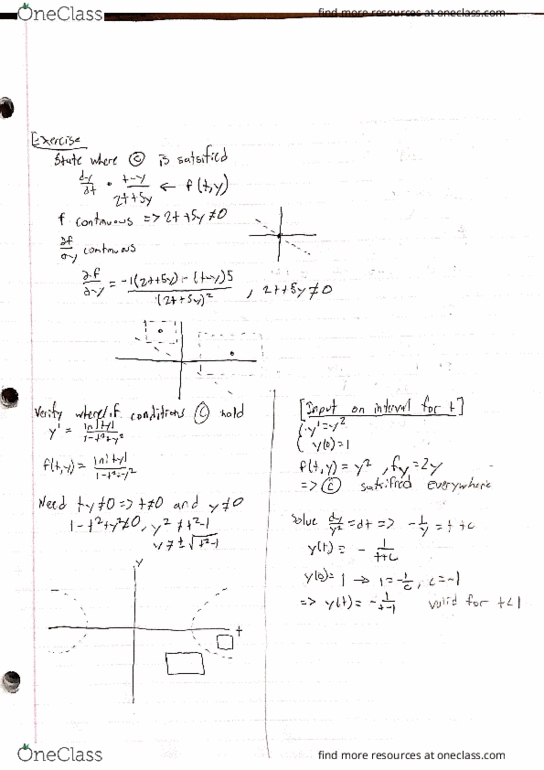 OneClass
find more resources at oneclass.com
Exercise
State where Ⓒ is satsified
dy/dt = t-y/2t+5y ← f(t,y)
f continuous => 2t+5y≠0
∂f/∂y continuous
∂f/∂y = -1(2t+5y) - (t-y)5/(2t+5y)² , 2t+5y≠0
Verify where/if conditions Ⓒ hold
y' = ln|ty|/1-t²+y²
f(t,y) = ln|ty|/1-t²+y²
Need ty≠0 => t≠0 and y≠0
1-t²+y²≠0, y²≠t²-1
y≠±√t²-1
y
t
[Input on interval for t]
{ y'=y²
y(0)=1
f(t,y) = y² , fy=2y
=> Ⓒ satisfied everywhere
Solve dy/y²=dt => -1/y = t+c
y(t) = - 1/t+c
y(0)=1 → 1=-1/c, c=-1
=> y(t) = -1/t-1 valid for t<1
OneClass
find more resources at oneclass.com